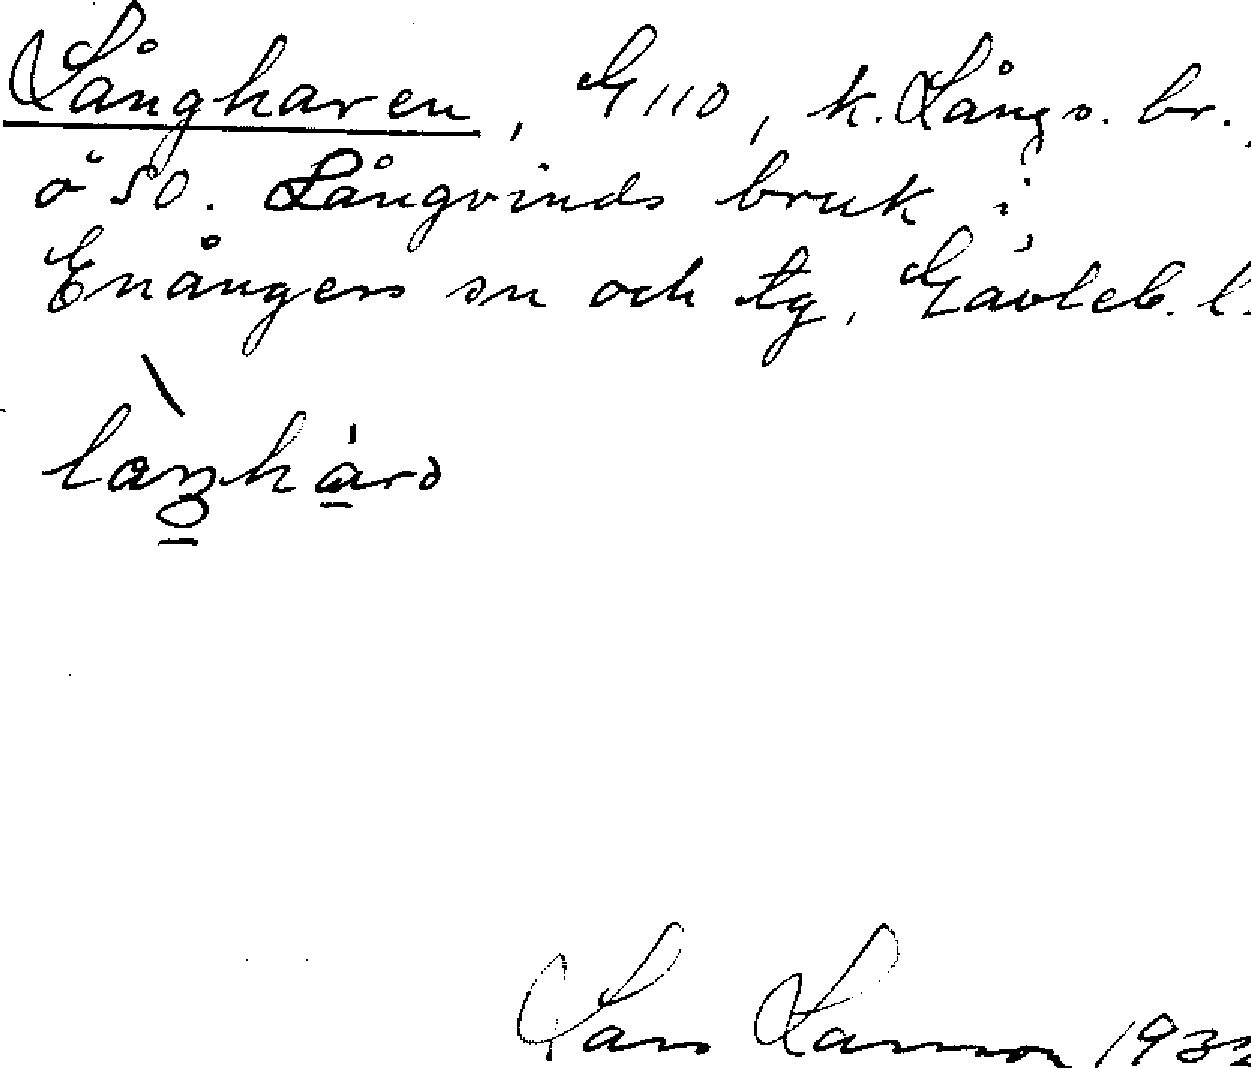 Långharen, G 110, k. Långs. br.,
ö SO. Långvinds bruk i
Enångers sn och tg, Gävleb. l.
Lars Larsson 1932